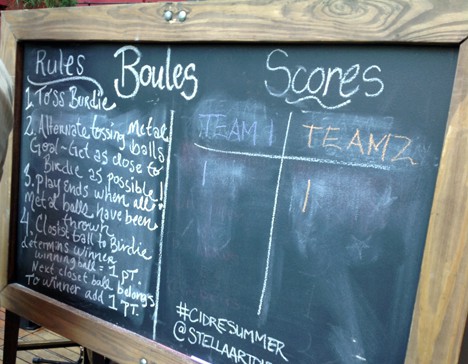 Rules
Boules
1. Toss Birdie
2. Alternate tossing Metal balls
Goal - Get as close to
Birdie as possible!
3. Play ends when all
Metal balls have been
thrown
4. Closest ball to Birdie
determins winner
winning ball = 1 pt.
Next closet ball belongs
To winner add 1 PT.
Scores
TEAM 1
TEAM 2
1
1
#CIDRESUMMER
@STELLAARTOIS